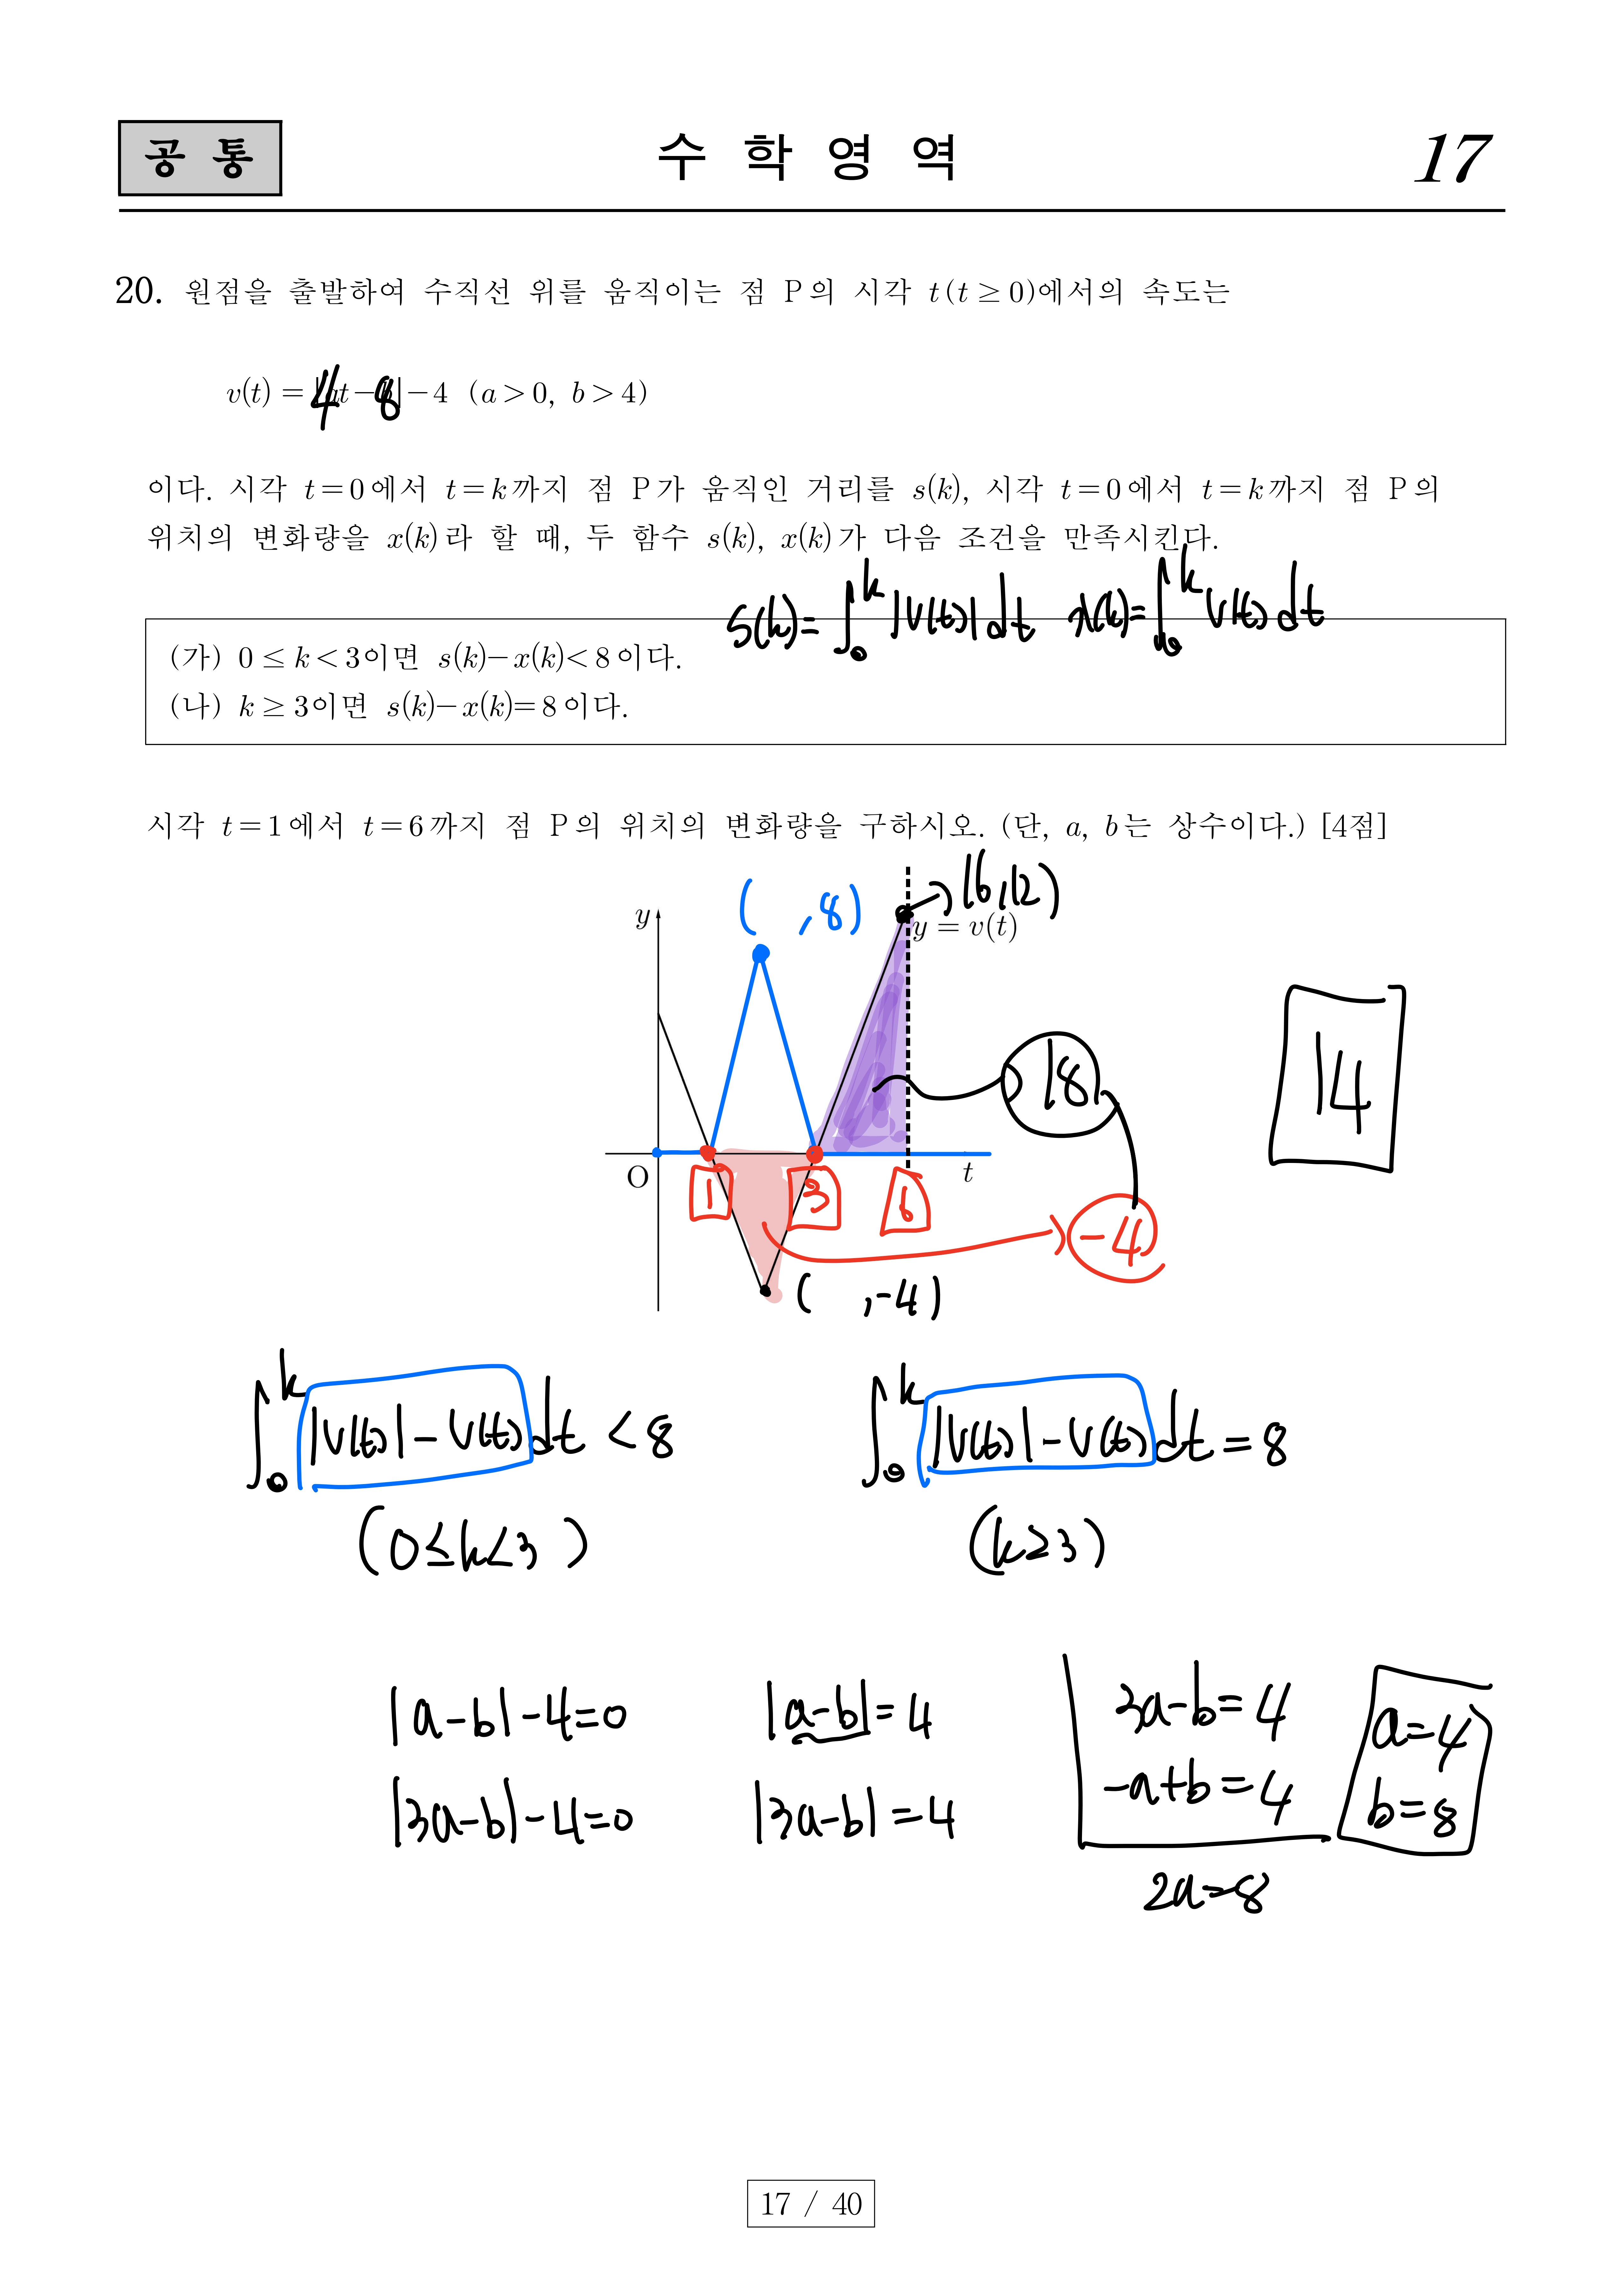 공 통
수 학 영 역
17
20. 원점을 출발하여 수직선 위를 움직이는 점 P의 시각 t(t ≥ 0)에서의 속도는
v(t) = |4t − 8| − 4 (a > 0, b > 4)
이다. 시각 t = 0에서 t = k까지 점 P가 움직인 거리를 s(k), 시각 t = 0에서 t = k까지 점 P의
위치의 변화량을 x(k)라 할 때, 두 함수 s(k), x(k)가 다음 조건을 만족시킨다.
s(k) = ∫₀ᵏ |v(t)| dt x(k) = ∫₀ᵏ v(t) dt
(가) 0 ≤ k < 3이면 s(k) − x(k) < 8이다.
(나) k ≥ 3이면 s(k) − x(k) = 8이다.
시각 t = 1에서 t = 6까지 점 P의 위치의 변화량을 구하시오. (단, a, b는 상수이다.) [4점]
( , 8)
(6, 12)
y
y = v(t)
18
14
O
1
3
6
t
−4
( , −4)
∫₀ᵏ |v(t)| − v(t) dt < 8
∫₀ᵏ |v(t)| − v(t) dt = 8
(0 ≤ k < 3)
(k ≥ 3)
|a − b| − 4 = 0
|a − b| = 4
3a − b = 4
a = 4
|3a − b| − 4 = 0
|3a − b| = 4
−a + b = 4
b = 8
2a = 8
17 / 40